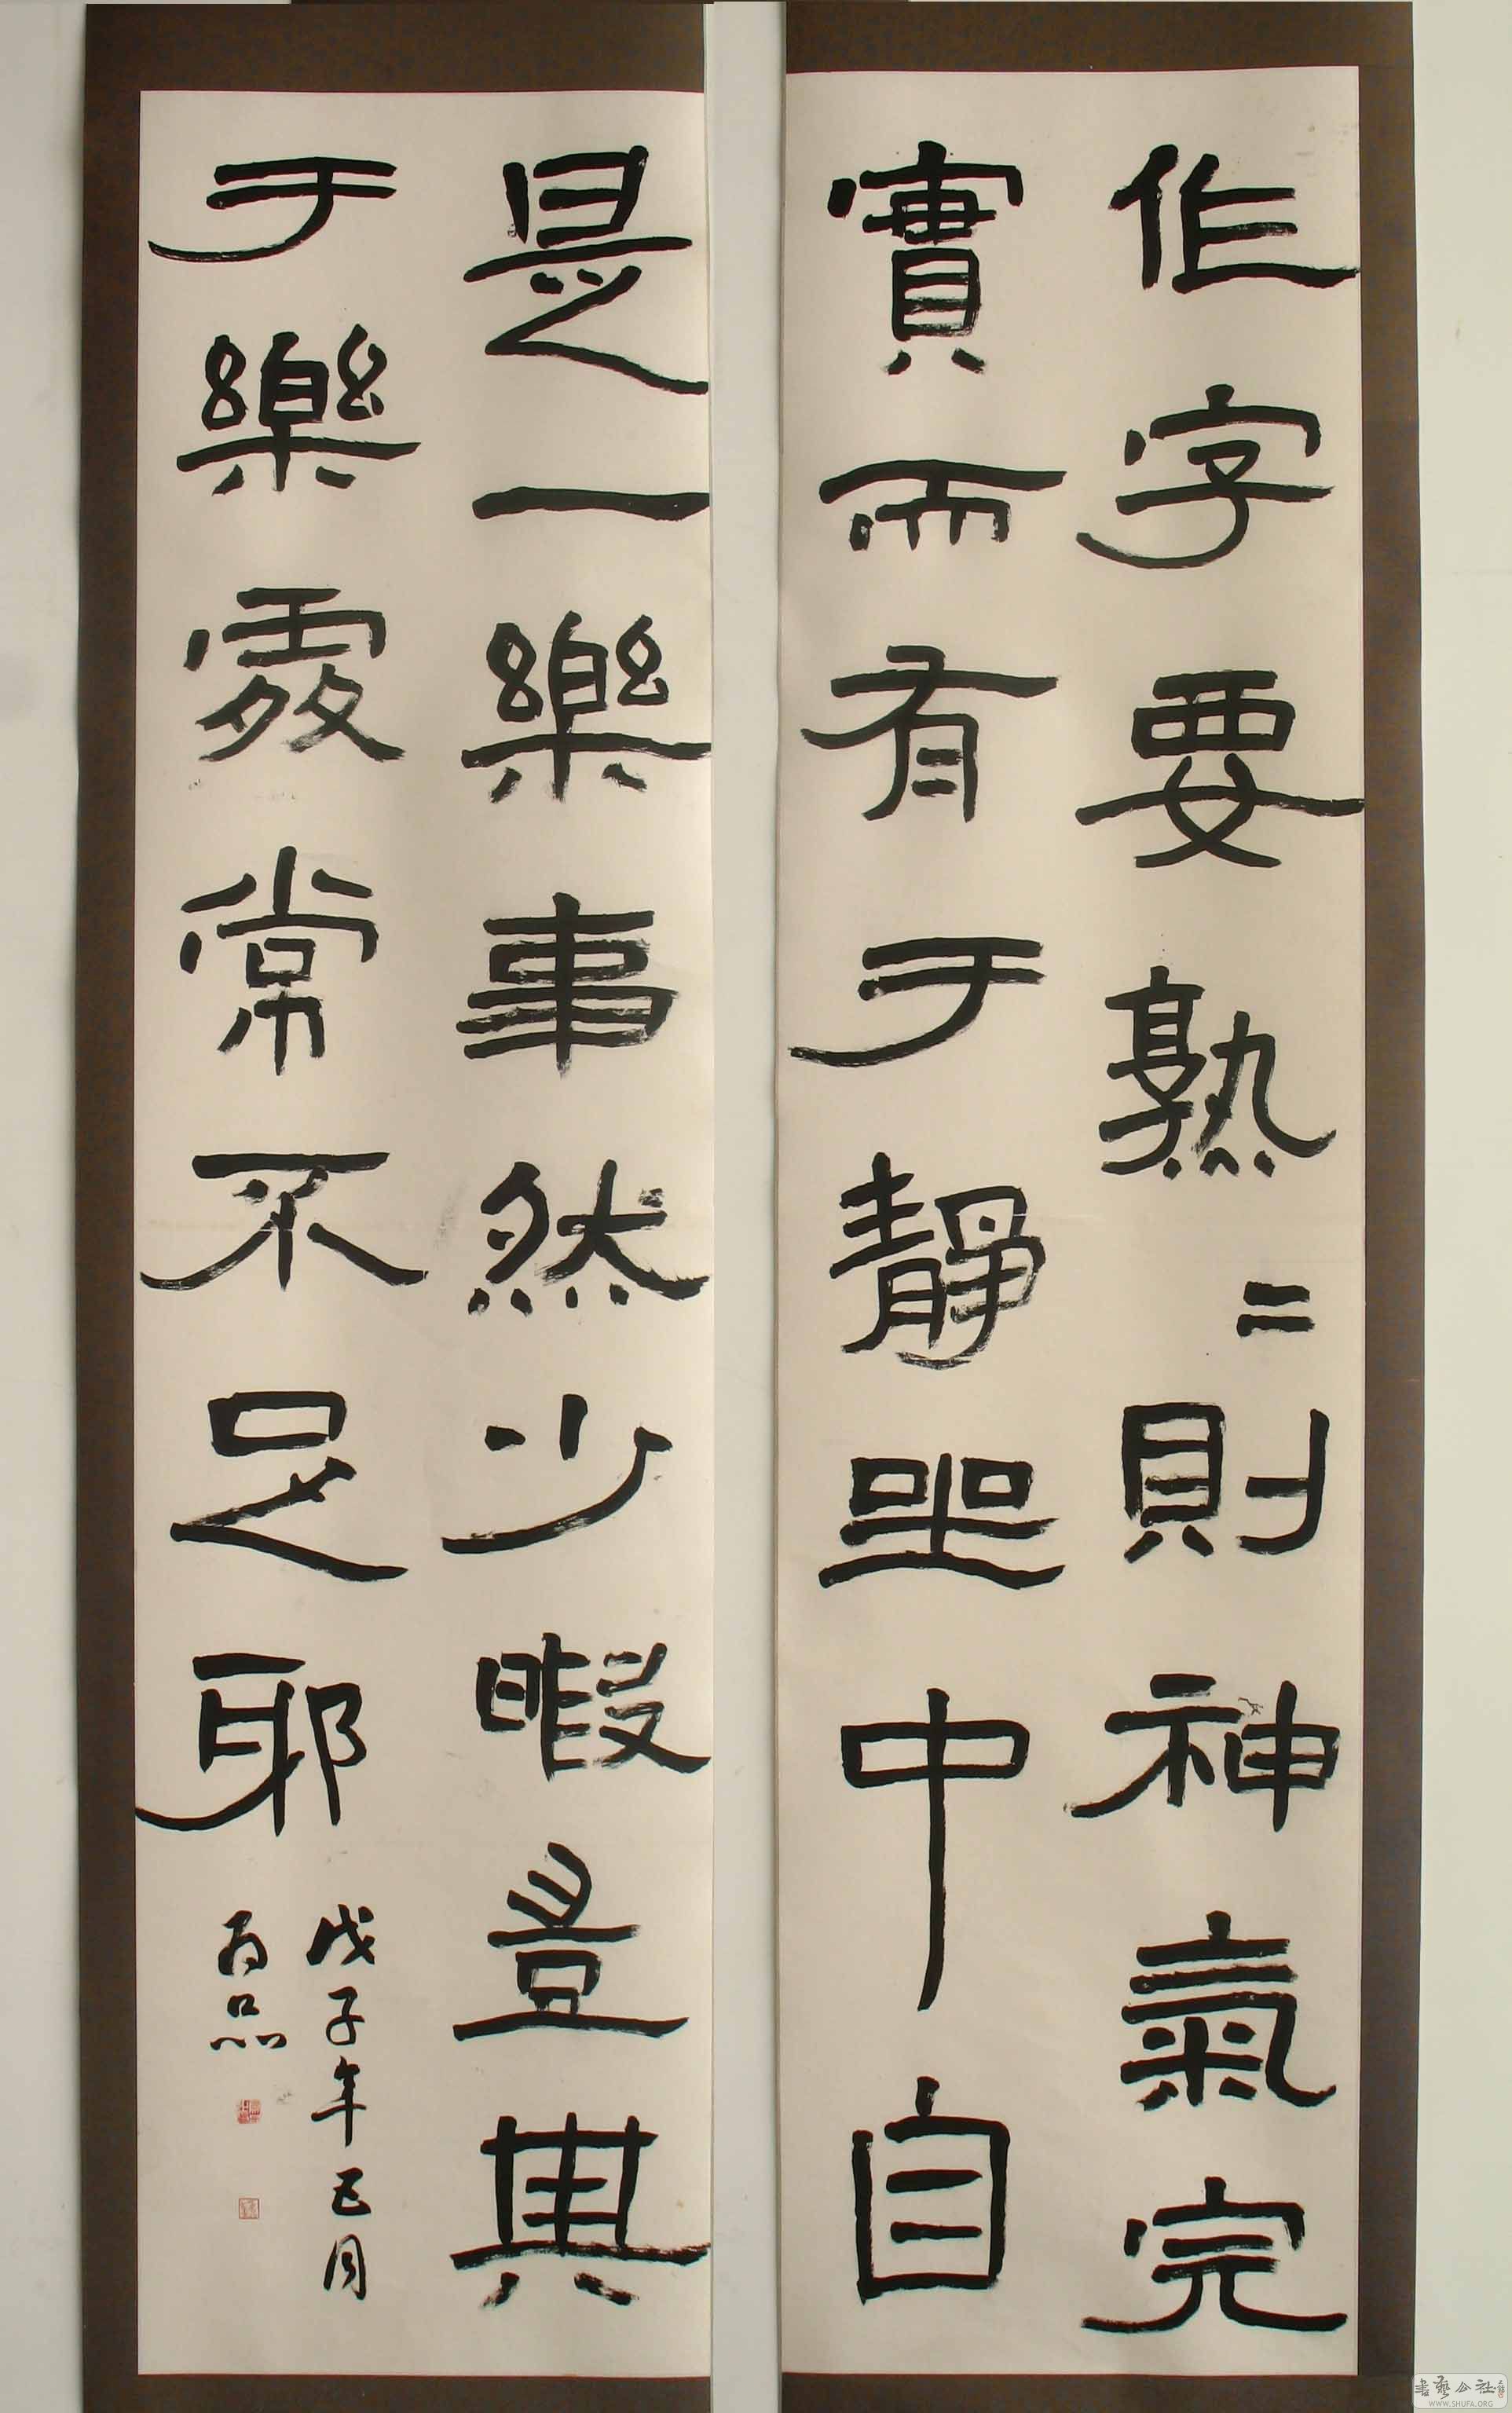 作字要熟〻則神氣完
實而有于靜坐中自
是一樂事然少暇豈其
于樂處常不足耶
戊子年五月
書藝公社
WWW.SHUFA.ORG